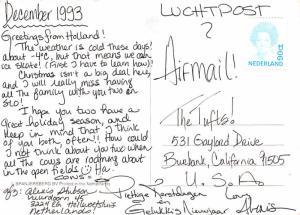 December 1993
Greetings from Holland!
The weather is cold these days!
about -4°C, but that means we can
ice skate! (First I have to learn how)!
Christmas isn't a big deal here,
and I will really miss having
all the family with you two in
SLO!
I hope you two have a
Great holiday season, and
keep in mind that I think
of you both often!! How could
I not think about you two when
all the cows are roaming about
in the open fields! Ha-
LUCHTPOST
?
Airmail!
NEDERLAND
90ct
The Tufts!
531 Gaylord Drive
Burbank, California 91505
U.S.A.
Prettige Kerstdagen
en
Gelukkig Nieuwjaar
Love
a/o: Alexis
Vuurdoorn 45
Hellevoetsluis
Netherlands!